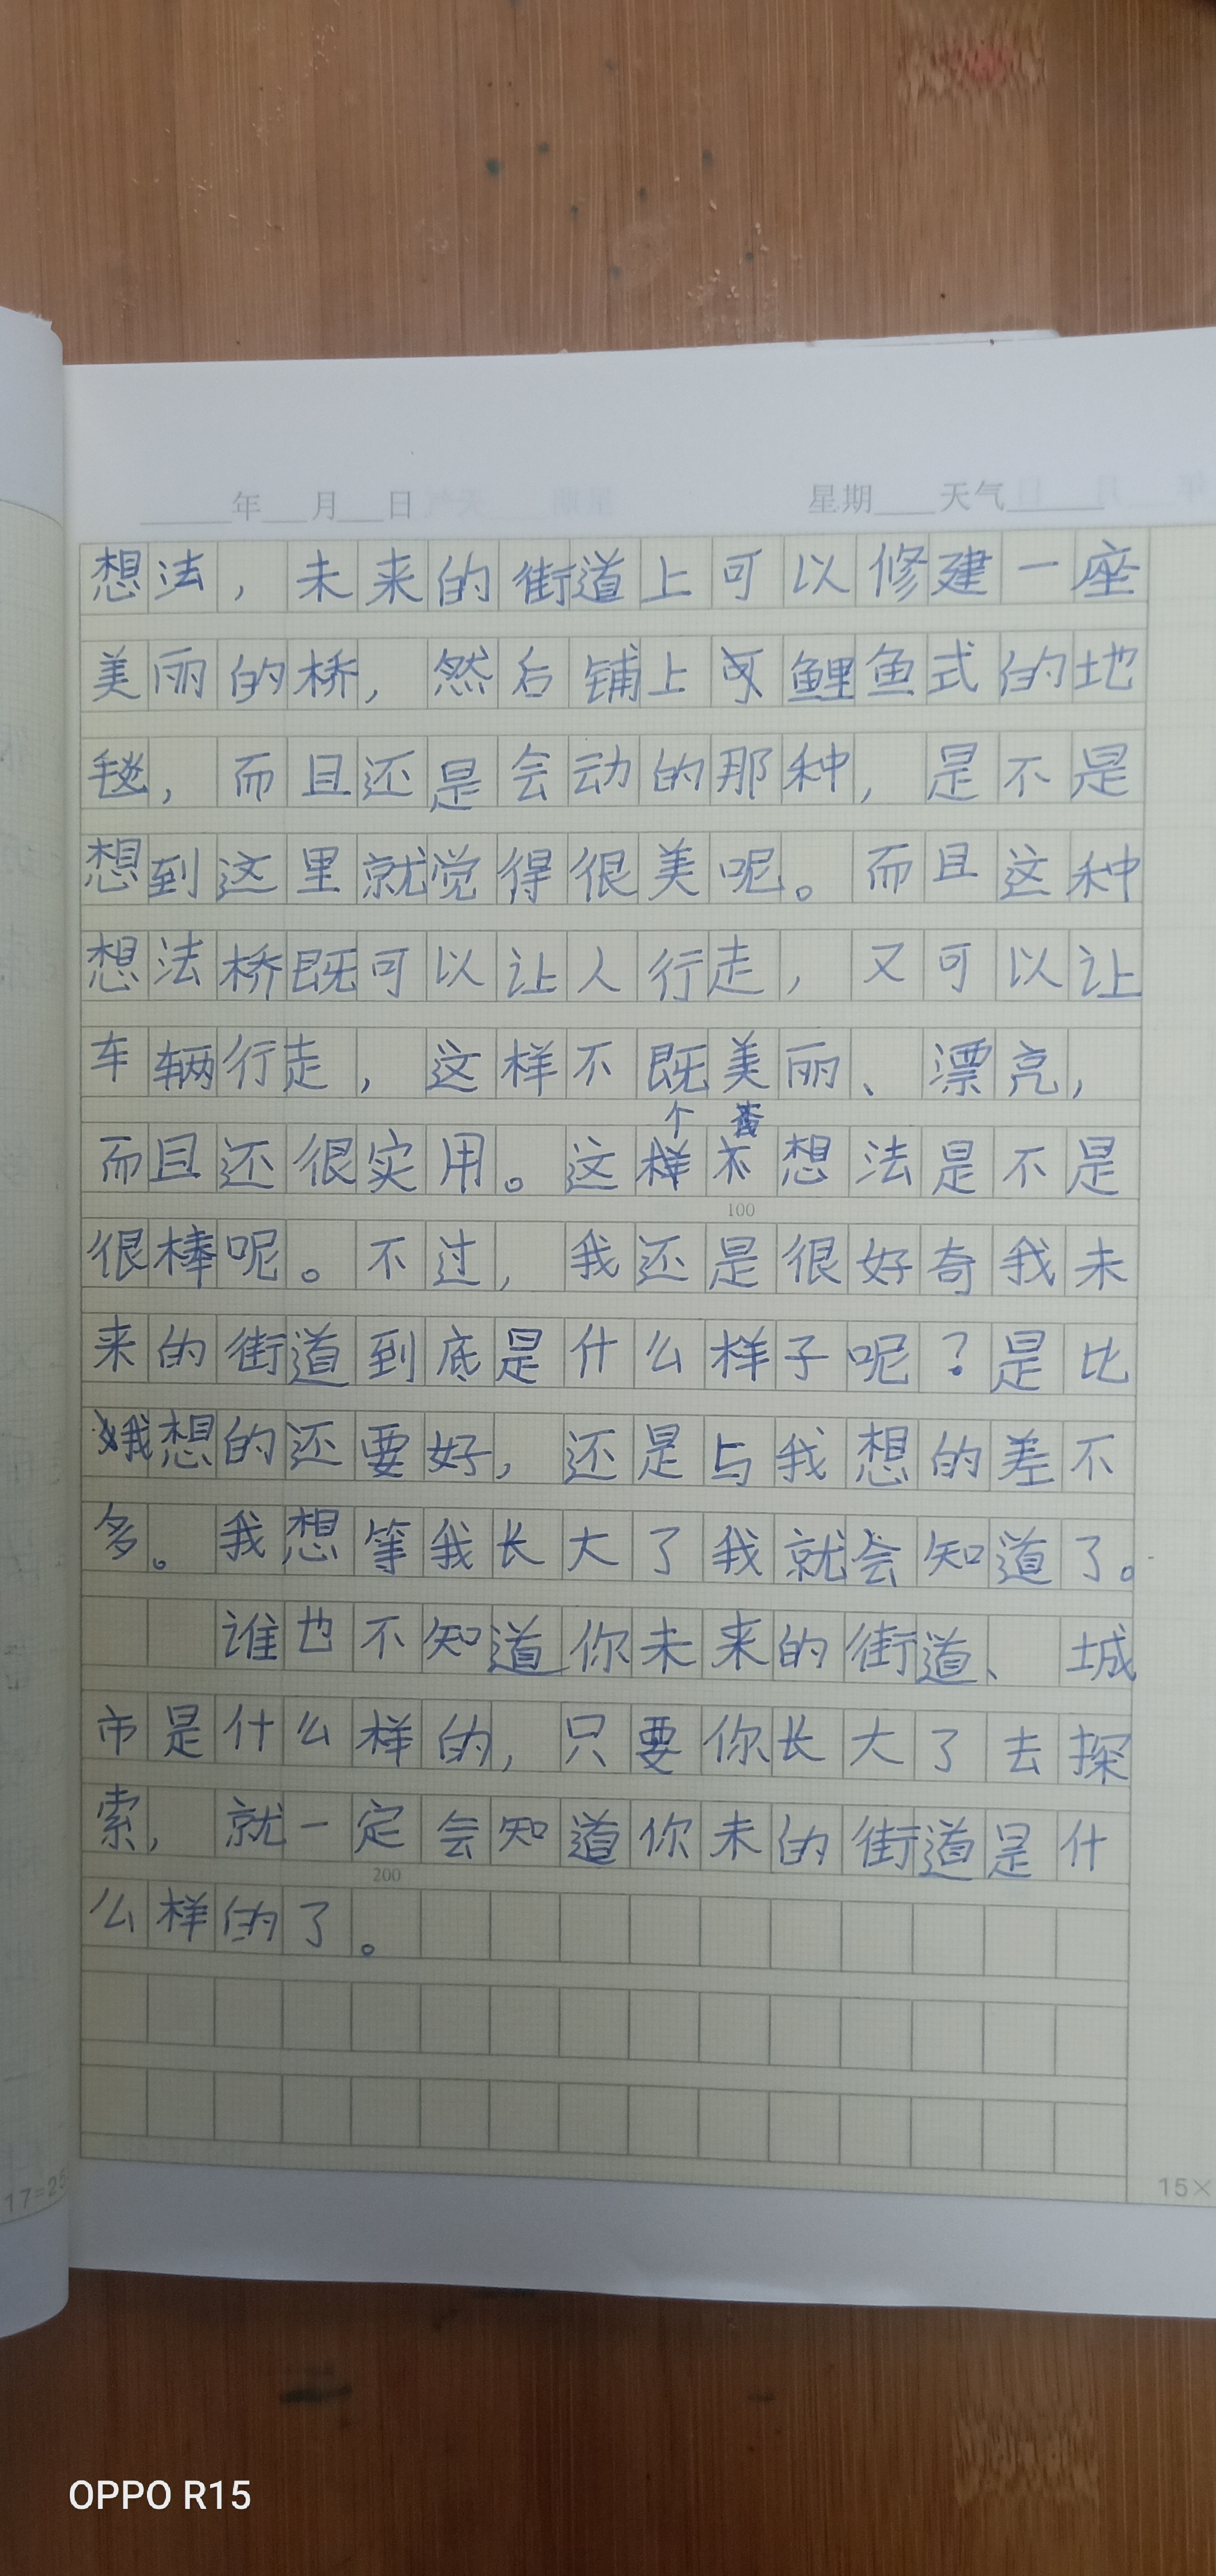 年 月 日 星期 天气
想法，未来的街道上可以修建一座
美丽的桥，然后铺上鲤鱼式的地
毯，而且还是会动的那种，是不是
想到这里就觉得很美呢。而且这种
想法桥既可以让人行走，又可以让
车辆行走，这样不既美丽、漂亮，
个
而且还很实用。这样想法是不是
100
很棒呢。不过，我还是很好奇我未
来的街道到底是什么样子呢？是比
我想的还要好，还是与我想的差不
多。我想等我长大了我就会知道了。
谁也不知道你未来的街道、城
市是什么样的，只要你长大了去探
索，就一定会知道你未的街道是什
200
么样的了。
17=25
15×
OPPO R15